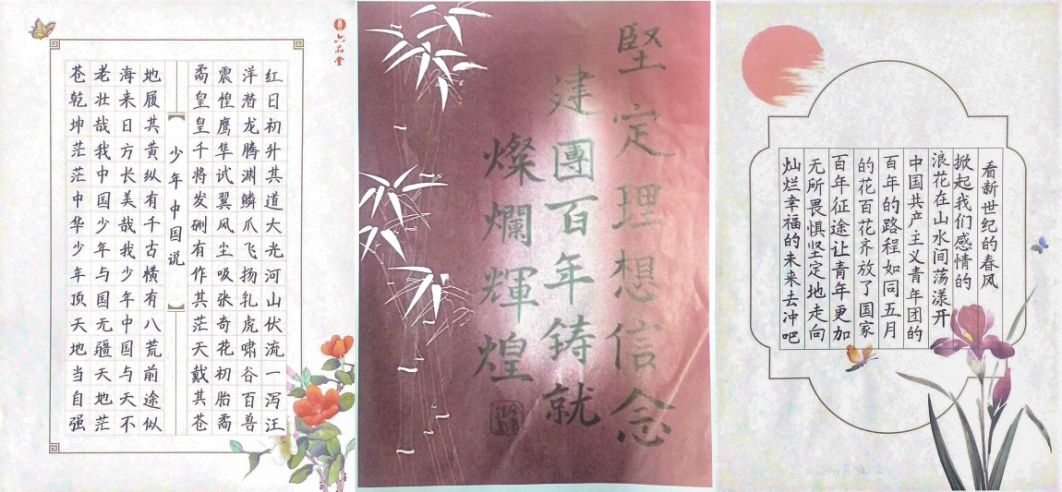 六品堂
红日初升其道大光河山伏流一泻汪
洋潜龙腾渊鳞爪飞扬乳虎啸谷百兽
震惶鹰隼试翼风尘吸张奇花初胎矞
矞皇皇千将发硎有作其芒天戴其苍
少年中国说
地履其黄纵有千古横有八荒前途似
海来日方长美哉我少年中国与天不
老壮哉我中国少年与国无疆天地茫
苍乾坤茫茫中华少年顶天地当自强
堅定理想信念
建團百年铸就
燦爛輝煌
看新世纪的春风
掀起我们感情的
浪花在山水间荡漾开
中国共产主义青年团的
百年的路程如同五月
的花百花齐放了国家
百年征途让青年更加
无所畏惧坚定地走向
灿烂幸福的未来去冲吧